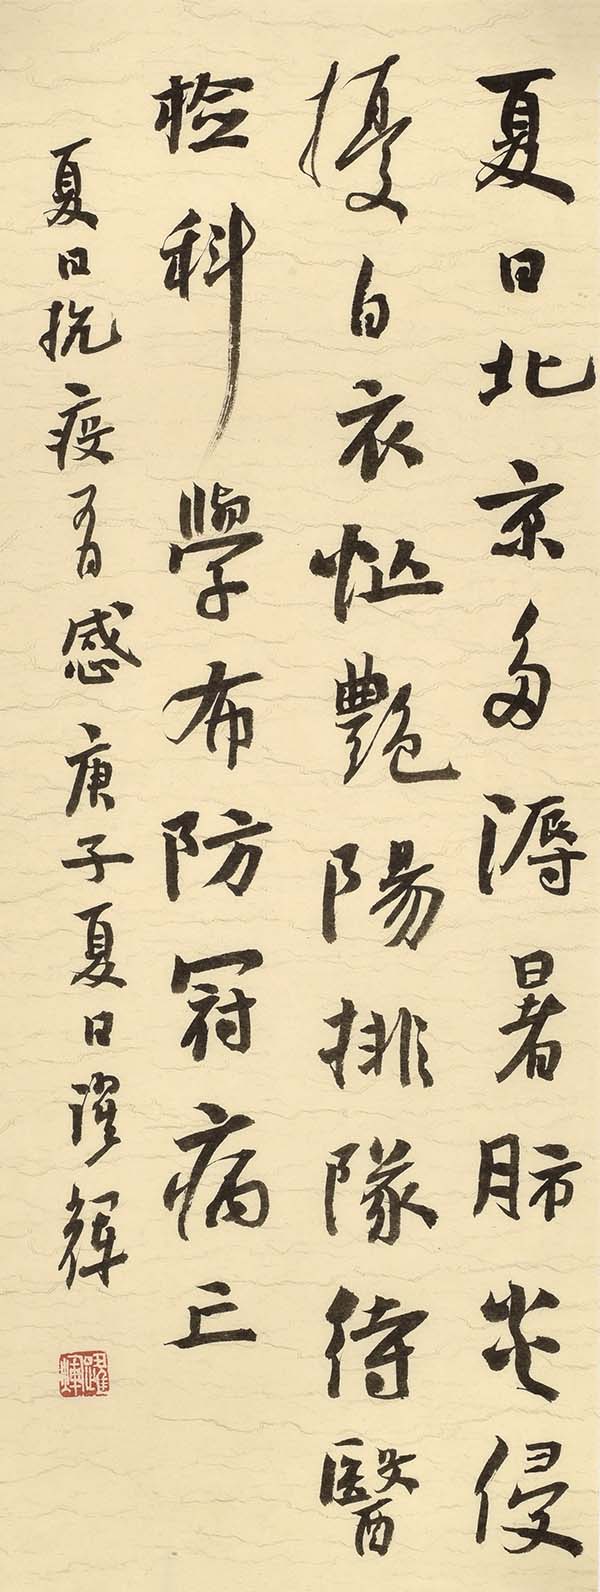 夏日北京多溽暑肺炎侵
擾白衣忙艷陽排隊待醫
检科學布防冠病亡
夏日抗疫有感庚子夏日躍輝
躍輝